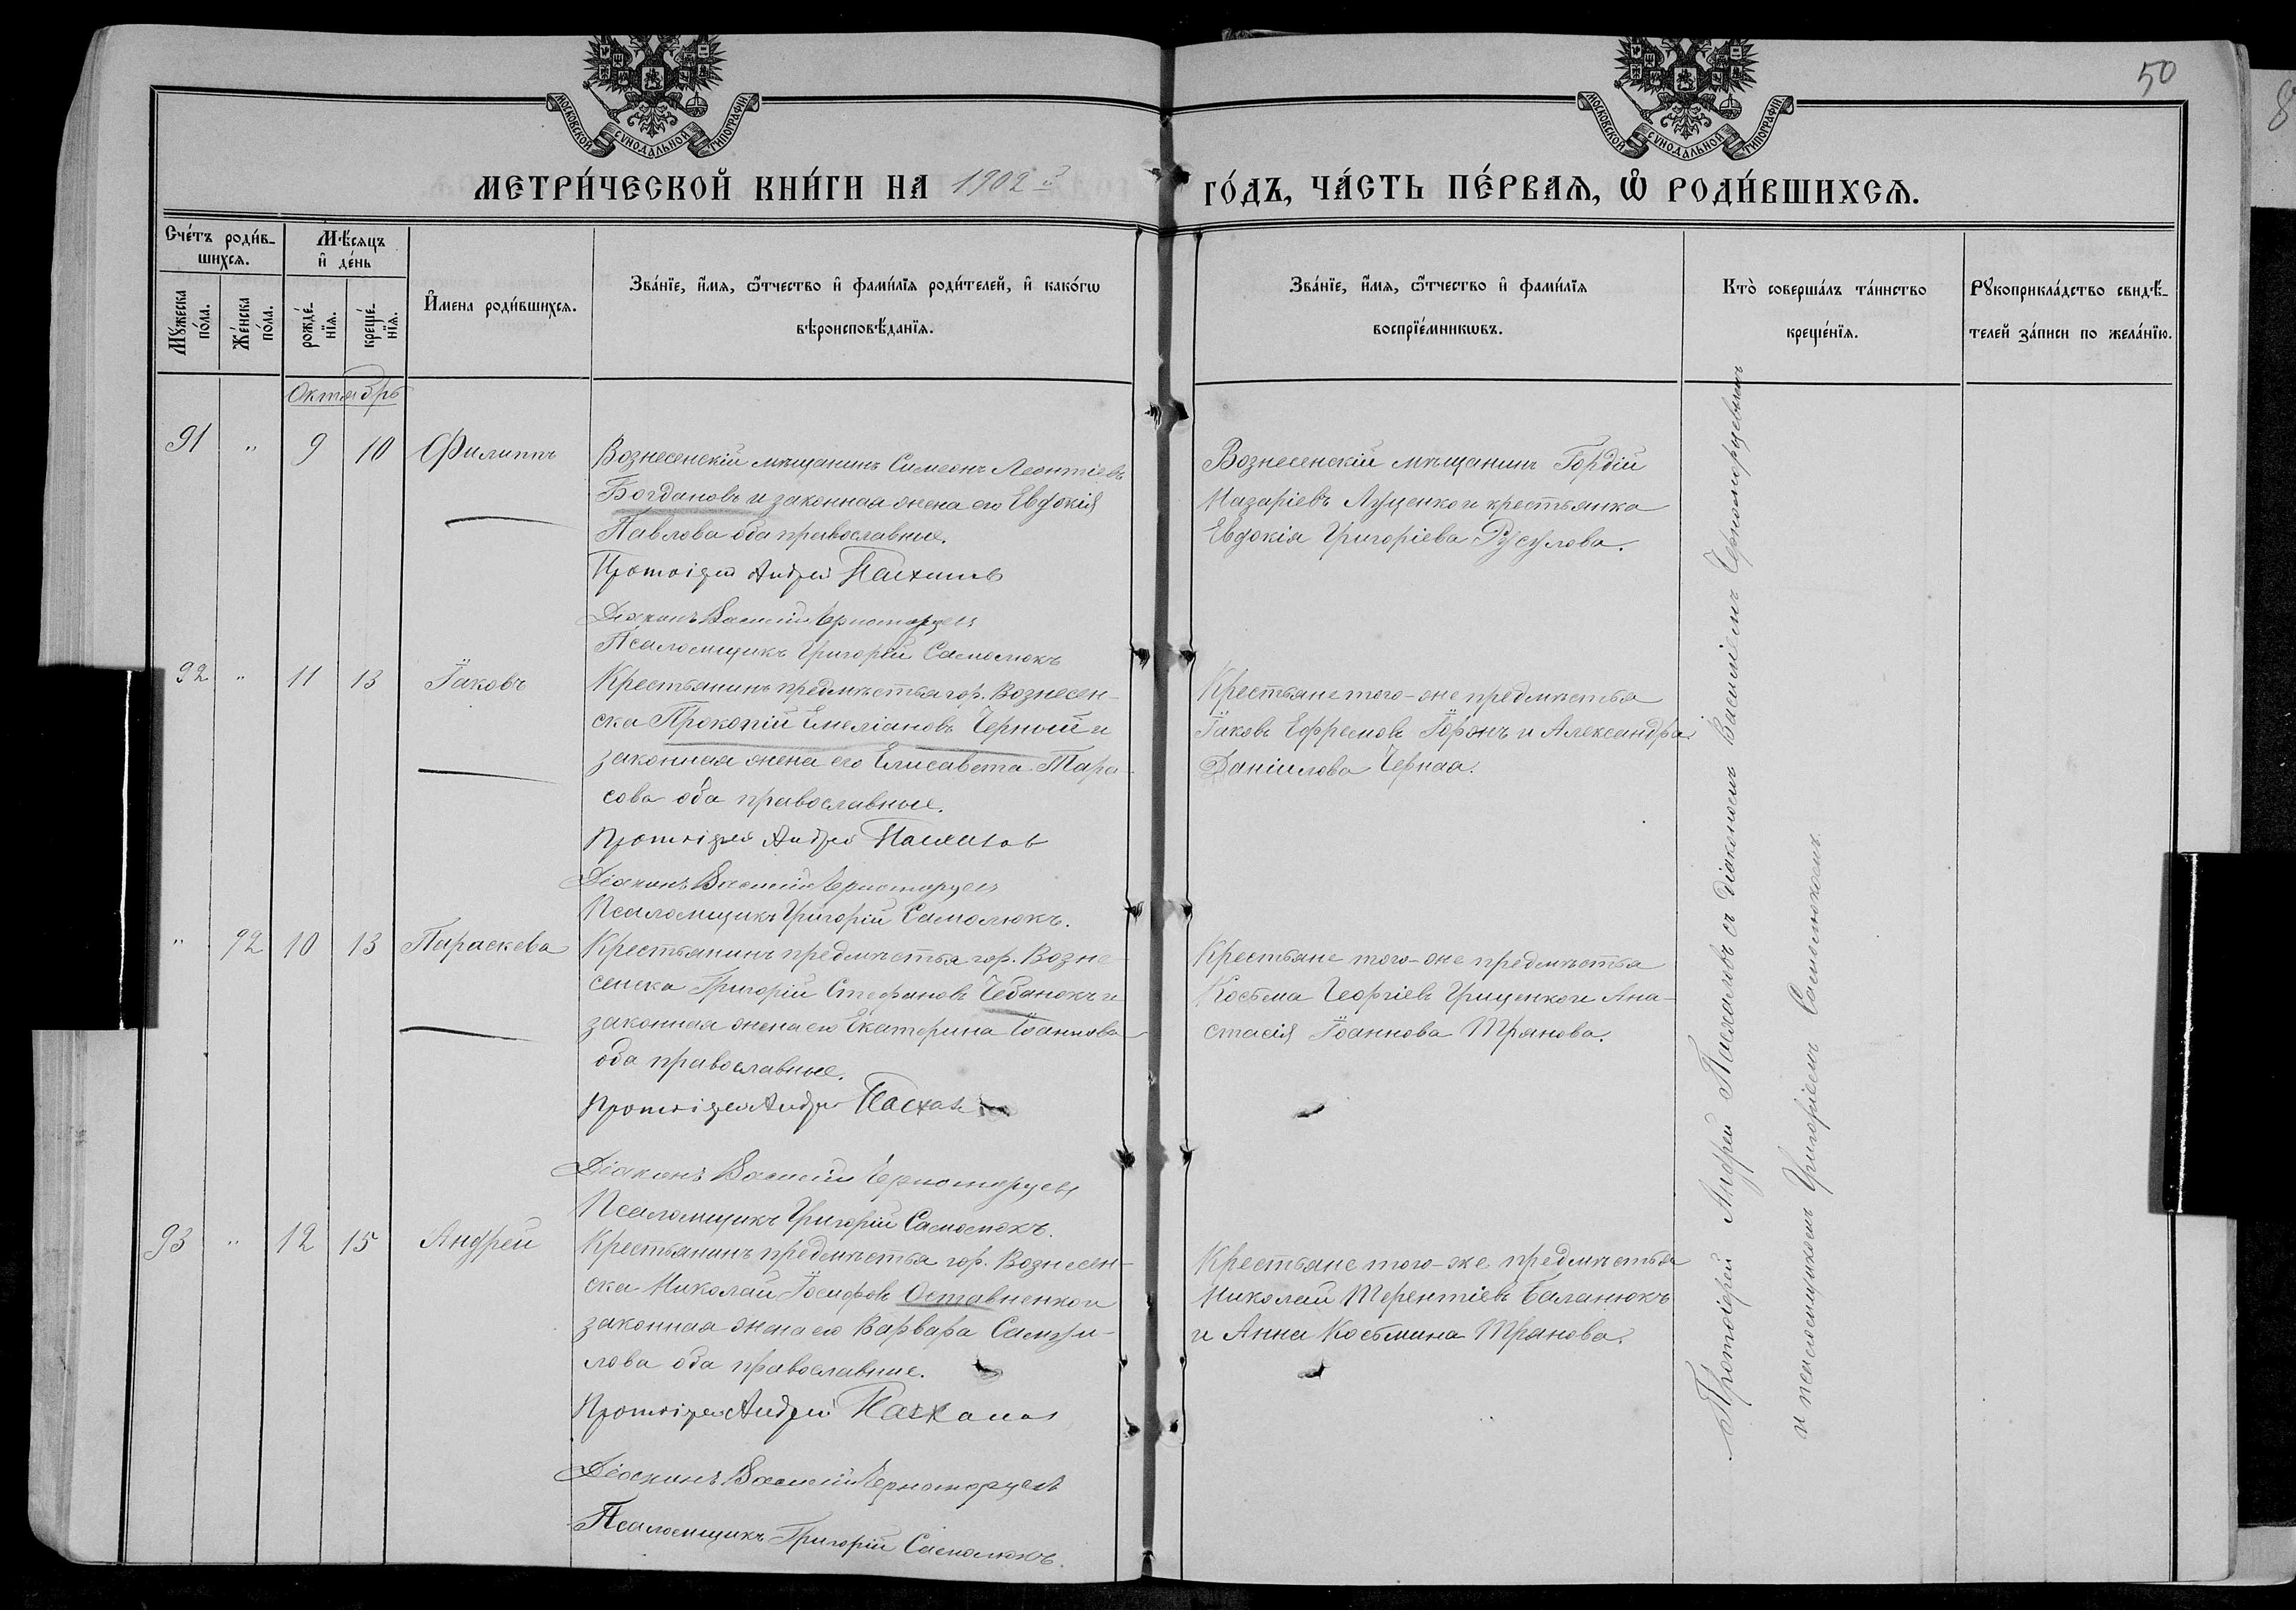 50
8
МОСКОВСКОЙ СѴНОДАЛЬНОЙ ТИПОГРАФІИ
МОСКОВСКОЙ СѴНОДАЛЬНОЙ ТИПОГРАФІИ
МЕТРИ́ЧЕСКОЙ КНИ́ГИ НА 1902й
ГО́ДЪ, ЧА́СТЬ ПЕ́РВАѦ, Ѡ҆ РОДИ́ВШИХСѦ.
Сче́тъ роди́в-
шихсѧ.
Мꙋ́жеска по́ла.
Же́нска по́ла.
Мѣ́сѧцъ
и҆ де́нь
рожде́-
нїѧ.
креще́-
нїѧ.
И҆мена роди́вшихсѧ.
Зва́нїе, и҆́мѧ, ѻ҆́тчество и҆ фами́лїѧ роди́телей, и҆ како́гѡ
вѣроисповѣ́данїѧ.
Зва́нїе, и҆́мѧ, ѻ҆́тчество и҆ фами́лїѧ
воспрїе́мникѡвъ.
Кто̀ соверша́лъ та́инство
креще́нїѧ.
Рꙋкоприкла́дство свидѣ́-
телей за́писи по жела́нїю.
Октябрь
91 " 9 10 Филиппъ
Вознесенскій мѣщанинъ Симеонъ Леонтіевъ
Богдановъ и законная жена его Евдокія
Павлова оба православные.
Протоіерей Андрей Пасхаловъ
Діаконъ Василій Черноморцевъ
Псаломщикъ Григорій Самолюкъ
Вознесенскій мѣщанинъ Гордій
Назаріевъ Луценко и крестьянка
Евдокія Григоріева Русулова.
92 " 11 13 Іаковъ
Крестьянинъ предмѣстья гор. Вознесен-
ска Прокопій Емеліановъ Черный и
законная жена его Елисавета Тара-
сова оба православные.
Протоіерей Андрей Пасхалов
Діаконъ Василій Черноморцевъ
Псаломщикъ Григорій Самолюкъ.
Крестьяне того-же предмѣстья
Іаковъ Ефремовъ Горонъ и Александра
Даніилова Черная.
" 92 10 13 Параскева
Крестьянинъ предмѣстья гор. Возне-
сенска Григорій Стефановъ Чебанюкъ и
законная жена его Екатерина Іоаннова
оба православные.
Протоіерей Андрей Пасхалов
Діаконъ Василій Черноморцевъ
Псаломщикъ Григорій Самолюкъ.
Крестьяне того-же предмѣстья
Косьма Георгіевъ Гриценко и Ана-
стасія Іоаннова Трянова.
93 " 12 15 Андрей
Крестьянинъ предмѣстья гор. Вознесен-
ска Николай Іосифовъ Оставненко и
законная жена его Варвара Самуи-
лова оба православные.
Протоіерей Андрей Пасхалов
Діаконъ Василій Черноморцевъ
Псаломщикъ Григорій Самолюкъ.
Крестьяне того-же предмѣстья
Николай Терентіевъ Баланюкъ
и Анна Косьмина Трянова.
Протоіерей Андрей Пасхаловъ съ діакономъ Василіемъ Черноморцевымъ
и псаломщикомъ Григоріемъ Самолюкомъ.